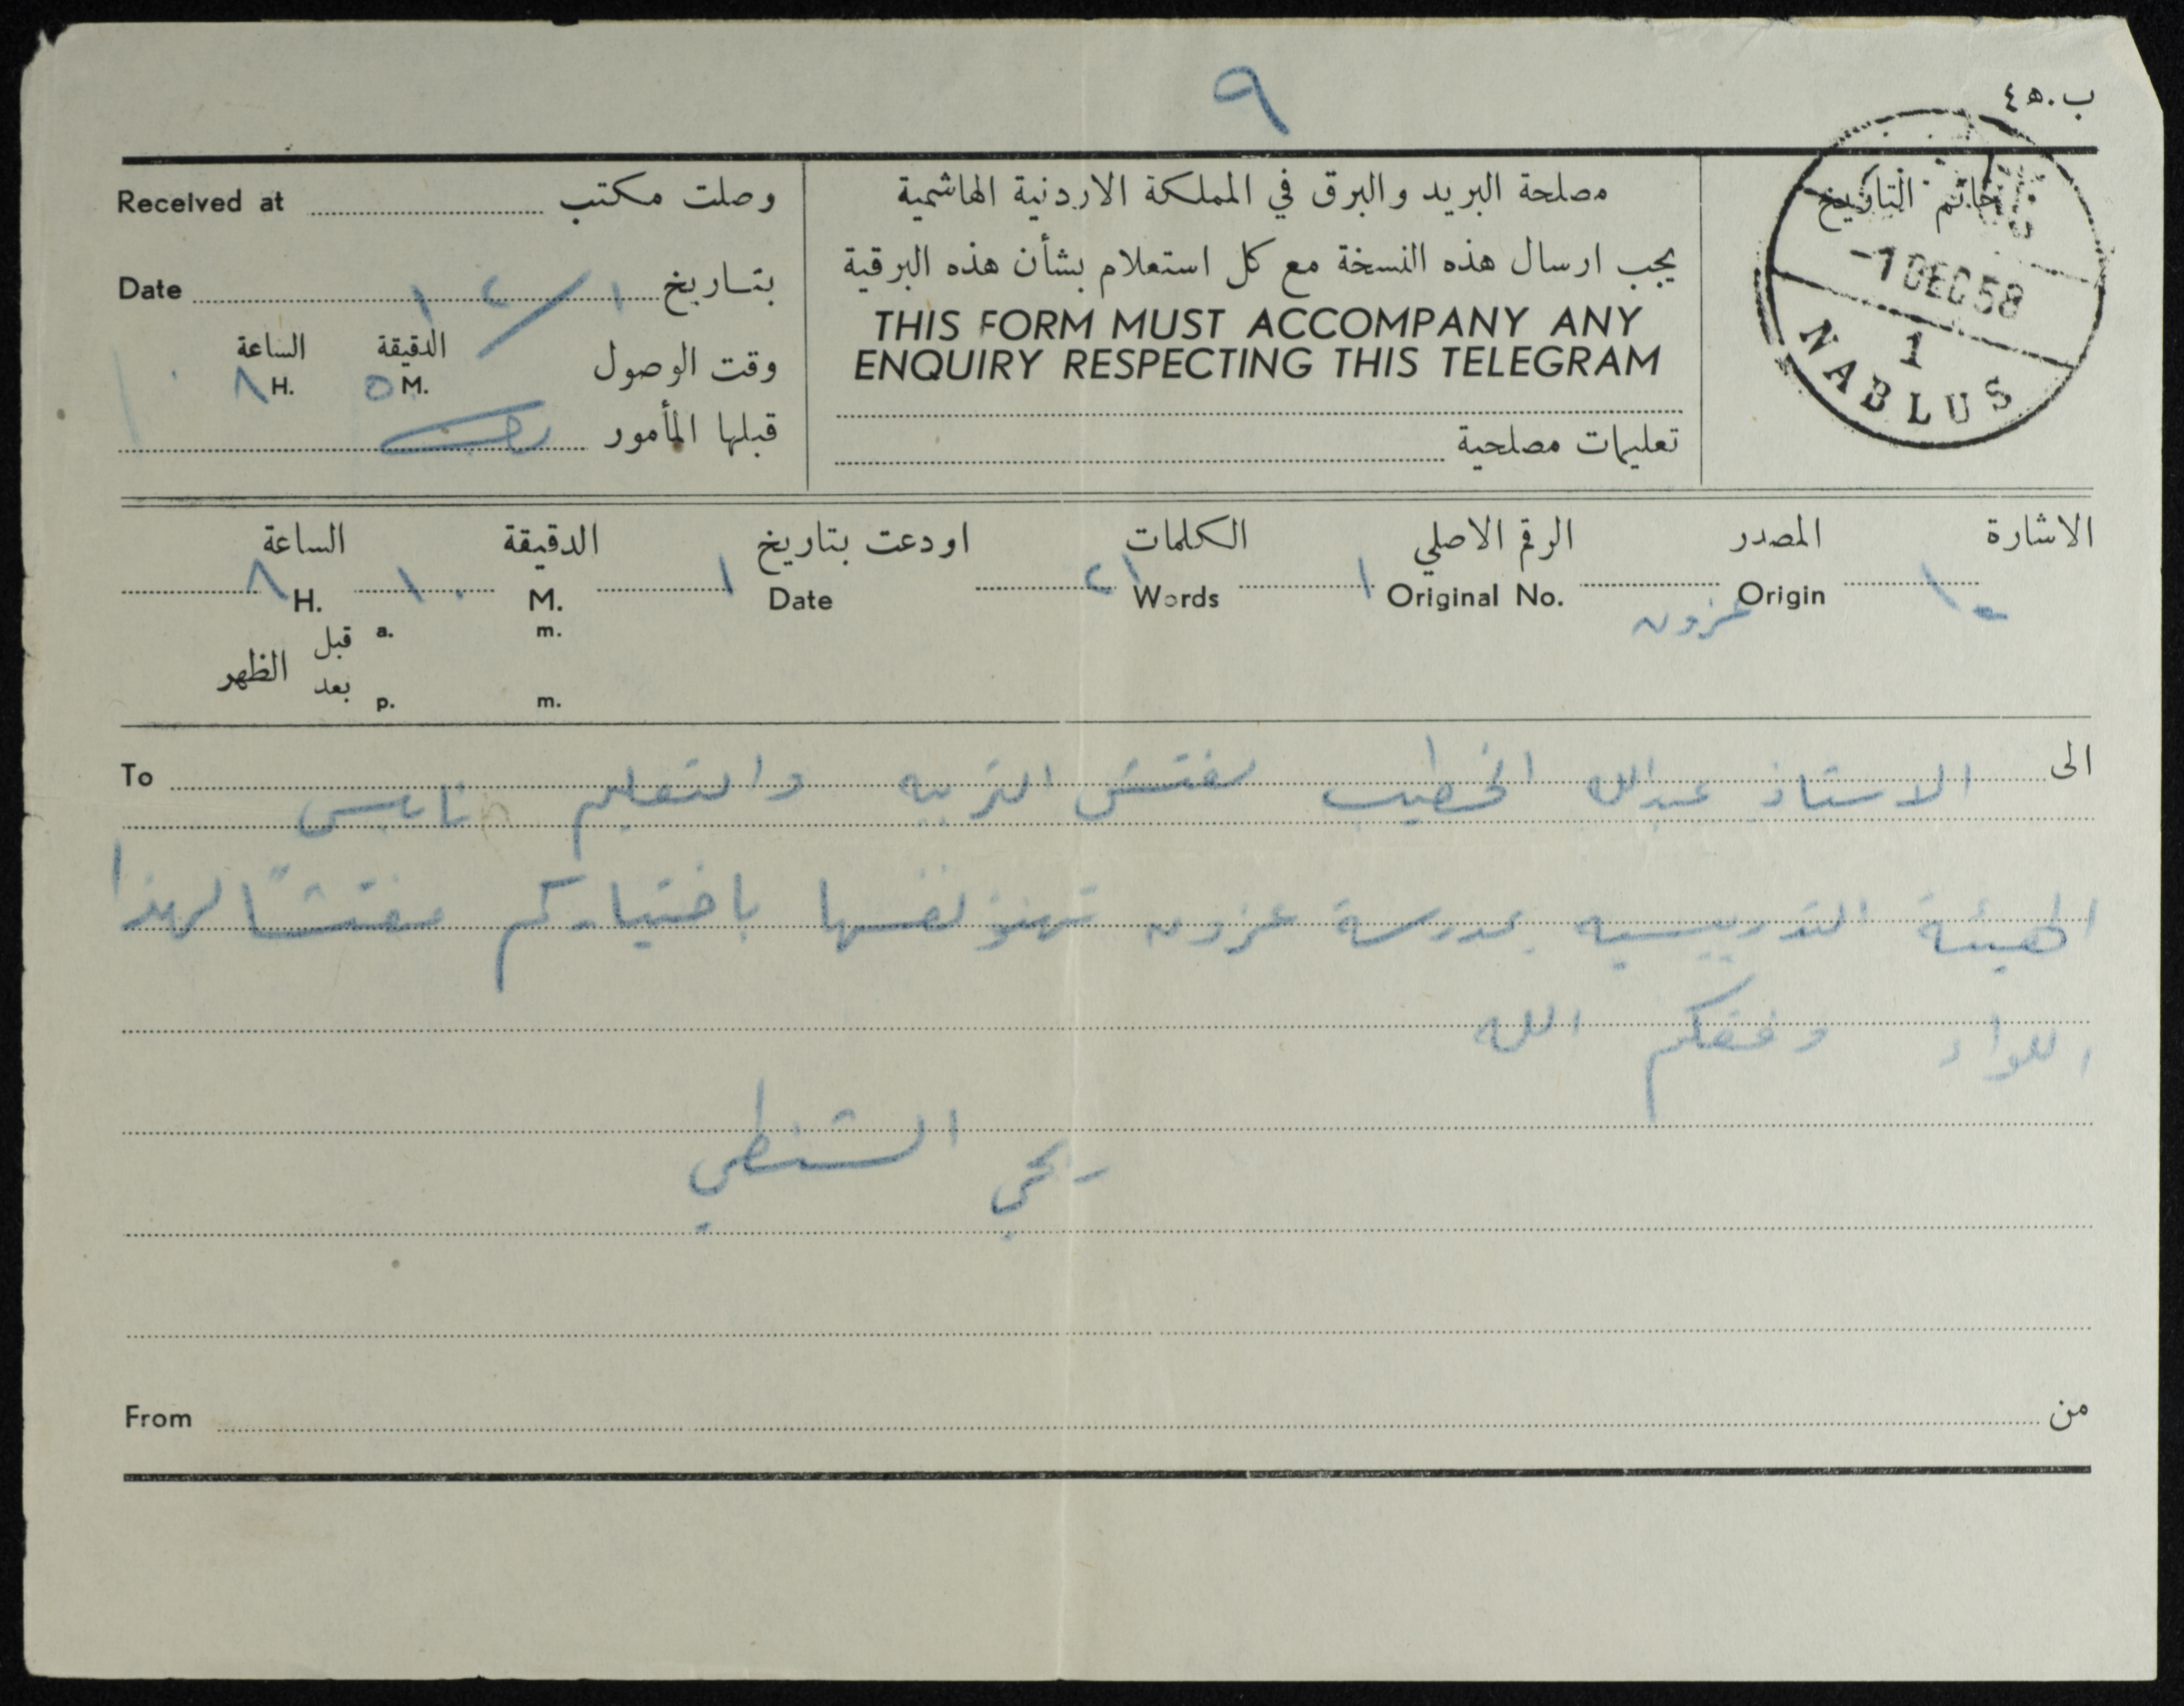 ٩
ب.هـ٤
Received at وصلت مكتب
Date بتاريخ ١٢/١
الساعة الدقيقة وقت الوصول
٨ H. ٥ M.
قبلها المأمور
مصلحة البريد والبرق في المملكة الاردنية الهاشمية
يجب ارسال هذه النسخة مع كل استعلام بشأن هذه البرقية
THIS FORM MUST ACCOMPANY ANY
ENQUIRY RESPECTING THIS TELEGRAM
تعليمات مصلحية
خاتم التاريخ
-1 DEC 58
1
NABLUS
الاشارة المصدر الرقم الاصلي الكلمات اودعت بتاريخ الدقيقة الساعة
Origin ١ Original No. ٢١ Words ١ Date ١٠ M. ٨ H.
عزون
قبل a. m.
الظهر
بعد p. m.
الى الاستاذ عبدالله الخطيب مفتش التربيه والتعليم نابلس To
الهيئة التدريسيه بمدرسة عزون تهنؤ نفسها باختياركم مفتشاً لهذا
اللواء وفقكم الله
ربحي الشنطي
From من